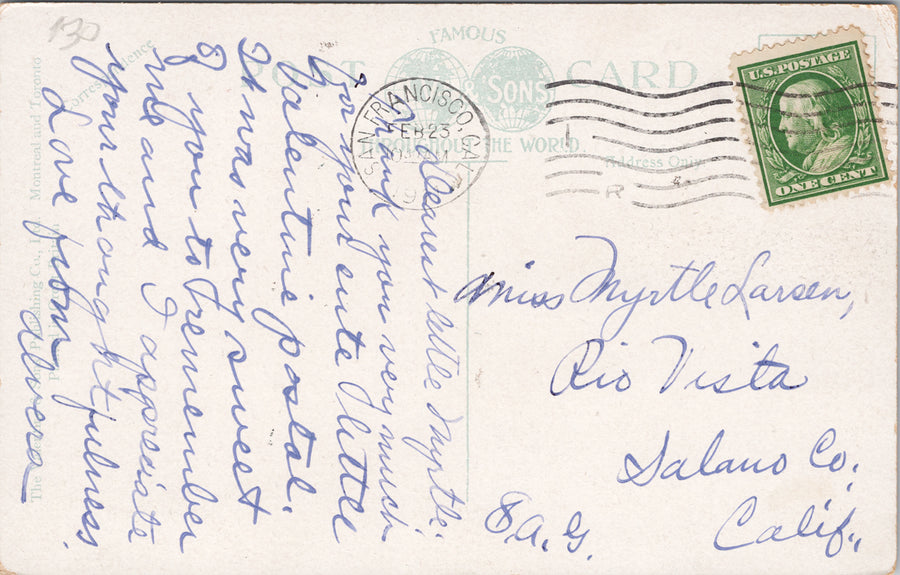 130
FAMOUS
POST CARD
& SONS
THROUGHOUT THE WORLD.
Correspondence
Address Only
SAN FRANCISCO, CAL.
FEB 23
U.S. POSTAGE
ONE CENT
Dearest little Myrtle:
Thank you very much
for your cute little
Valentine postal.
It was very sweet
of you to remember
me and I appreciate
your thoughtfulness.
Love from
Alvera
Miss Myrtle Larsen,
Rio Vista
Salano Co.
Calif.,
Montreal and Toronto